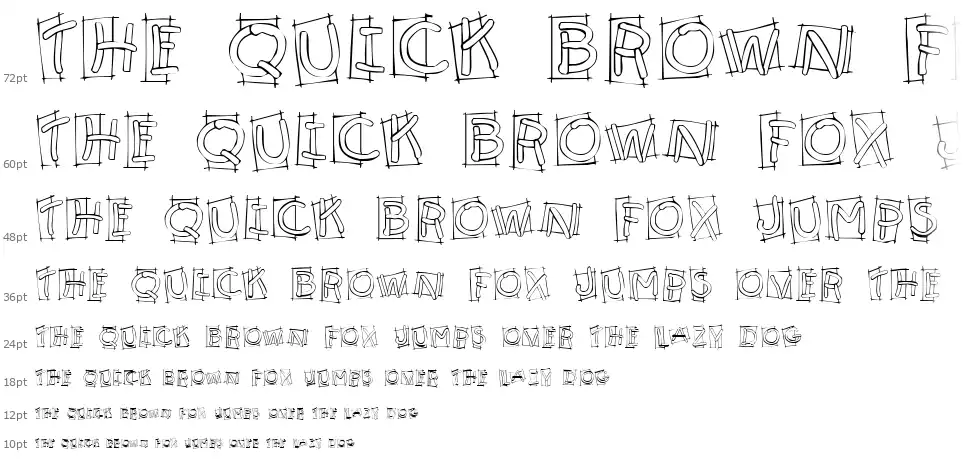 72pt THE QUICK BROWN F
60pt THE QUICK BROWN FOX J
48pt THE QUICK BROWN FOX JUMPS
36pt THE QUICK BROWN FOX JUMPS OVER THE
24pt THE QUICK BROWN FOX JUMPS OVER THE LAZY DOG
18pt THE QUICK BROWN FOX JUMPS OVER THE LAZY DOG
12pt THE QUICK BROWN FOX JUMPS OVER THE LAZY DOG
10pt THE QUICK BROWN FOX JUMPS OVER THE LAZY DOG